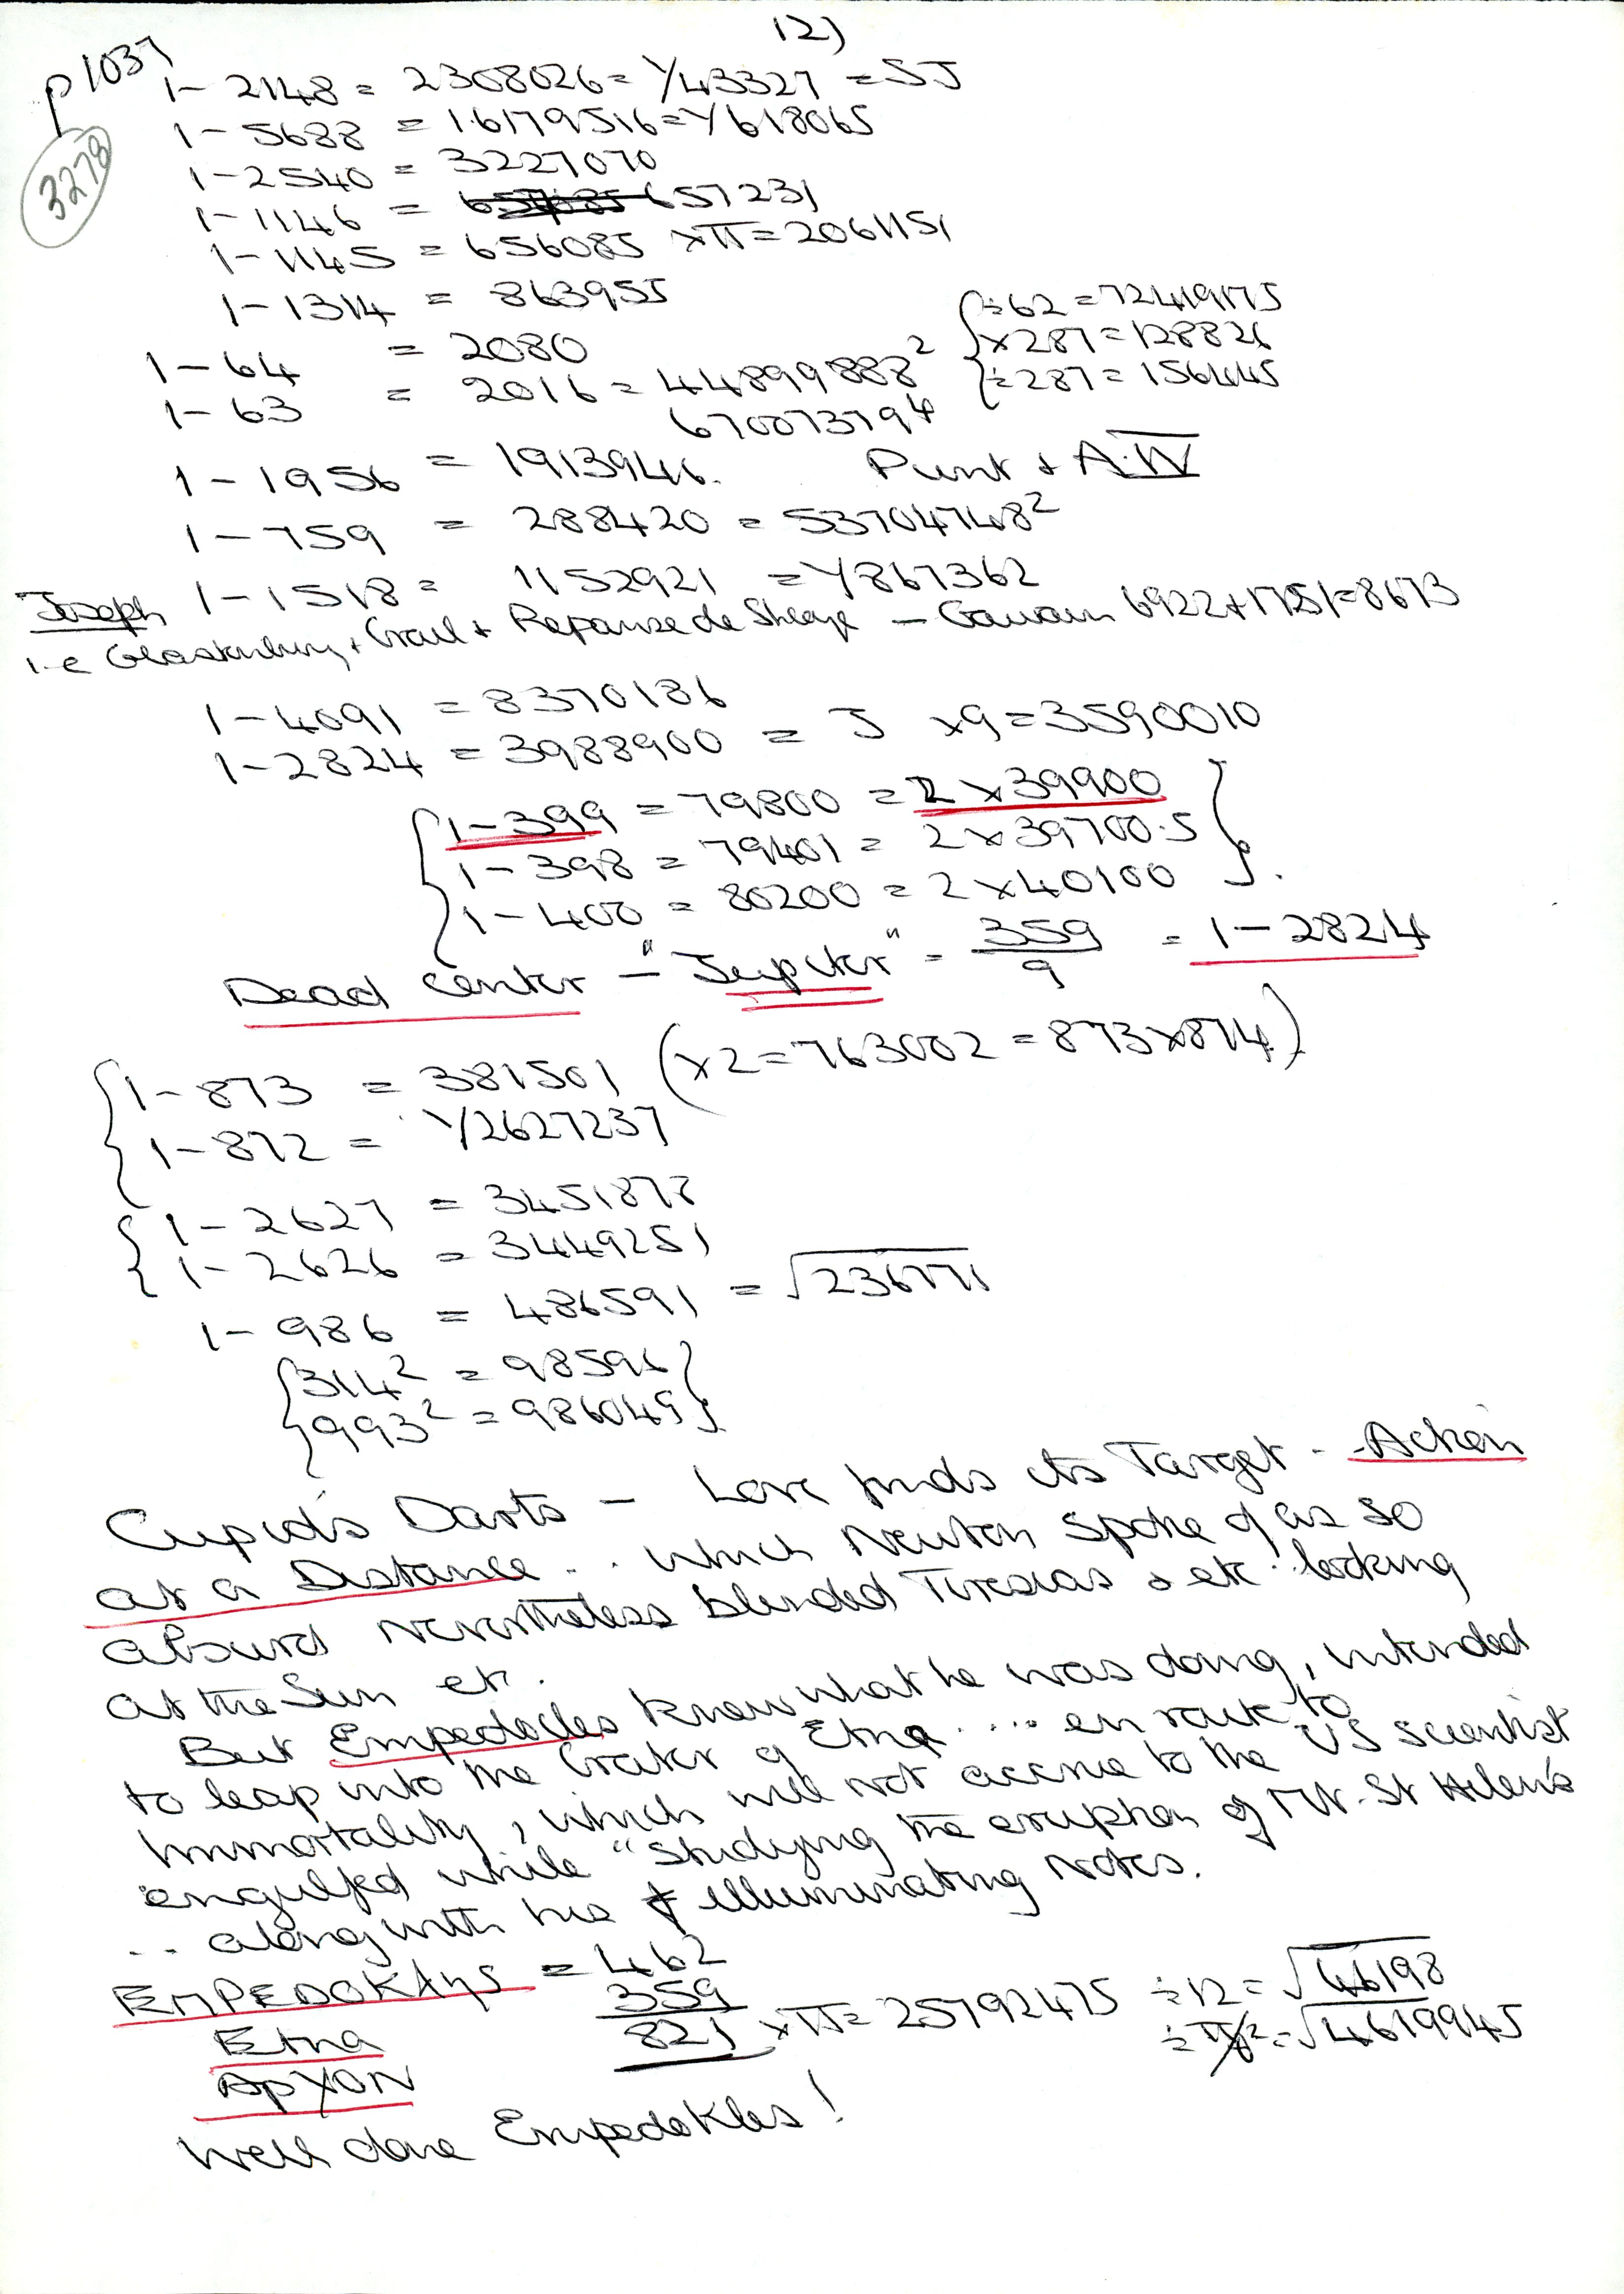 12)
p1037
3278
1-2148 = 2308026 = Y43327 = SJ
1-5688 = 16179516 = Y618065
1-2540 = 3227070
1-1146 = 657231
1-1145 = 656085 ×π = 2061151
1-1314 = 863955
1-64 = 2080
1-63 = 2016 = 44899888²
670073794
÷62 = 72419175
×287 = 128826
÷287 = 156445
1-1956 = 1913946. Punt + A.W
1-759 = 288420 = 53704748²
1-1518 = 1152921 = Y867362
Joseph
i.e Glastonbury + Grail + Repanse de Shoye - Gawain 6922+1751=8673
1-4091 = 8370186
1-2824 = 3988900 = J ×9 = 3590010
1-399 = 79800 = 2×39900
1-398 = 79401 = 2×39700.5
1-400 = 80200 = 2×40100
Dead center - "Jupiter" = 359/9 = 1-2824
1-873 = 381501 (×2 = 763002 = 873×874)
1-872 = Y2627237
1-2627 = 3451878
1-2626 = 3449251
1-986 = 486591 = √236771
314² = 98596
993² = 986049
Cupid's Darts - Love finds its Target -- Action
at a Distance .. which Newton spoke of as so
absurd nevertheless blinded Tiresias & etc .. looking
at the Sun etc.
But Empedocles knew what he was doing, intended
to leap into the Crater of Etna .... en route to
Immortality, which will not accrue to the US scientist
engulfed while "studying the eruption of Mt. St Helen's
.. along with his illuminating notes.
EMPEDOKλησ = 462
Etna 359
ApXON 821 ×π = 25792475 ÷12 = √46198
÷π² = √4619945
Well done Empedokles!